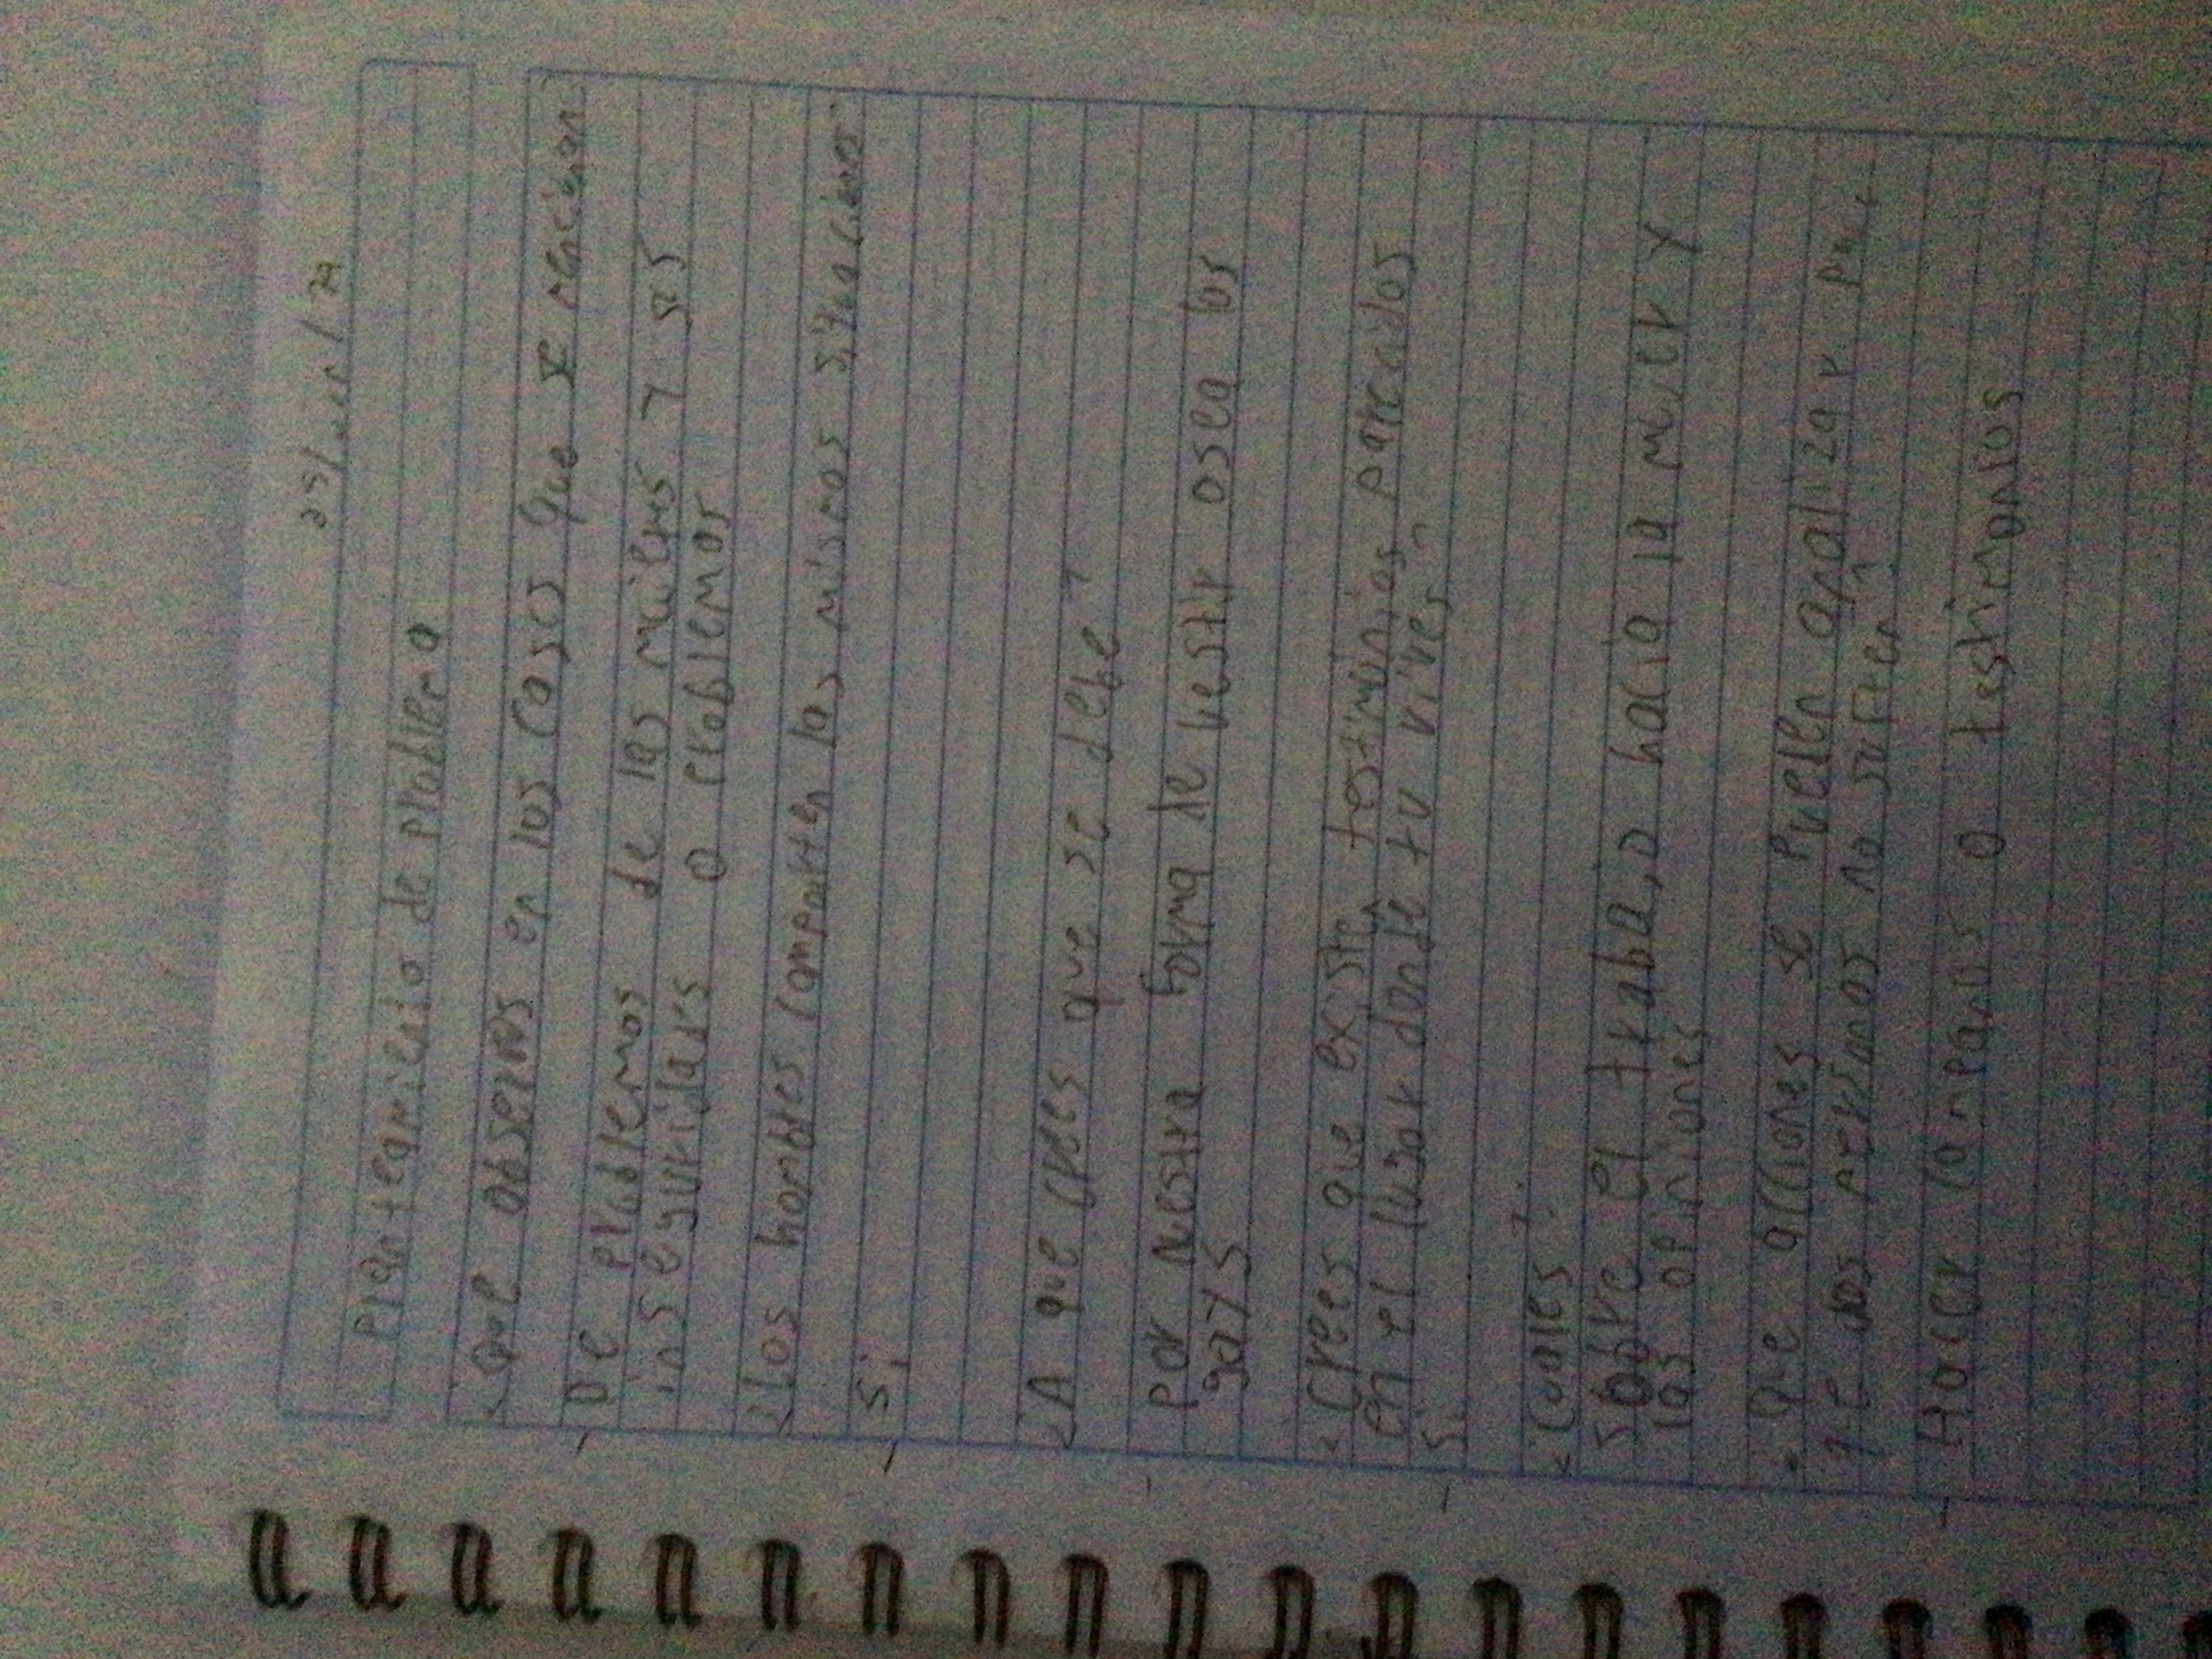 Planteamiento de problema
¿Que observas en los casos que se relacionan
De problemas de las mujeres y sus
inseguridades o problemas
¿Los hombres comparten las mismos situaciones
Si
¿A que crees que se debe?
Por nuestra forma de vestir osea los
gays
¿Crees que existen testimonios parecidos
en el lugar donde tu vives?
Si
¿Cuales?
Sobre el trabajo hacia la mujer y
las opiniones
¿Que acciones se pueden analizar para
que las personas no sufren?
Hacer campañas o testimonios